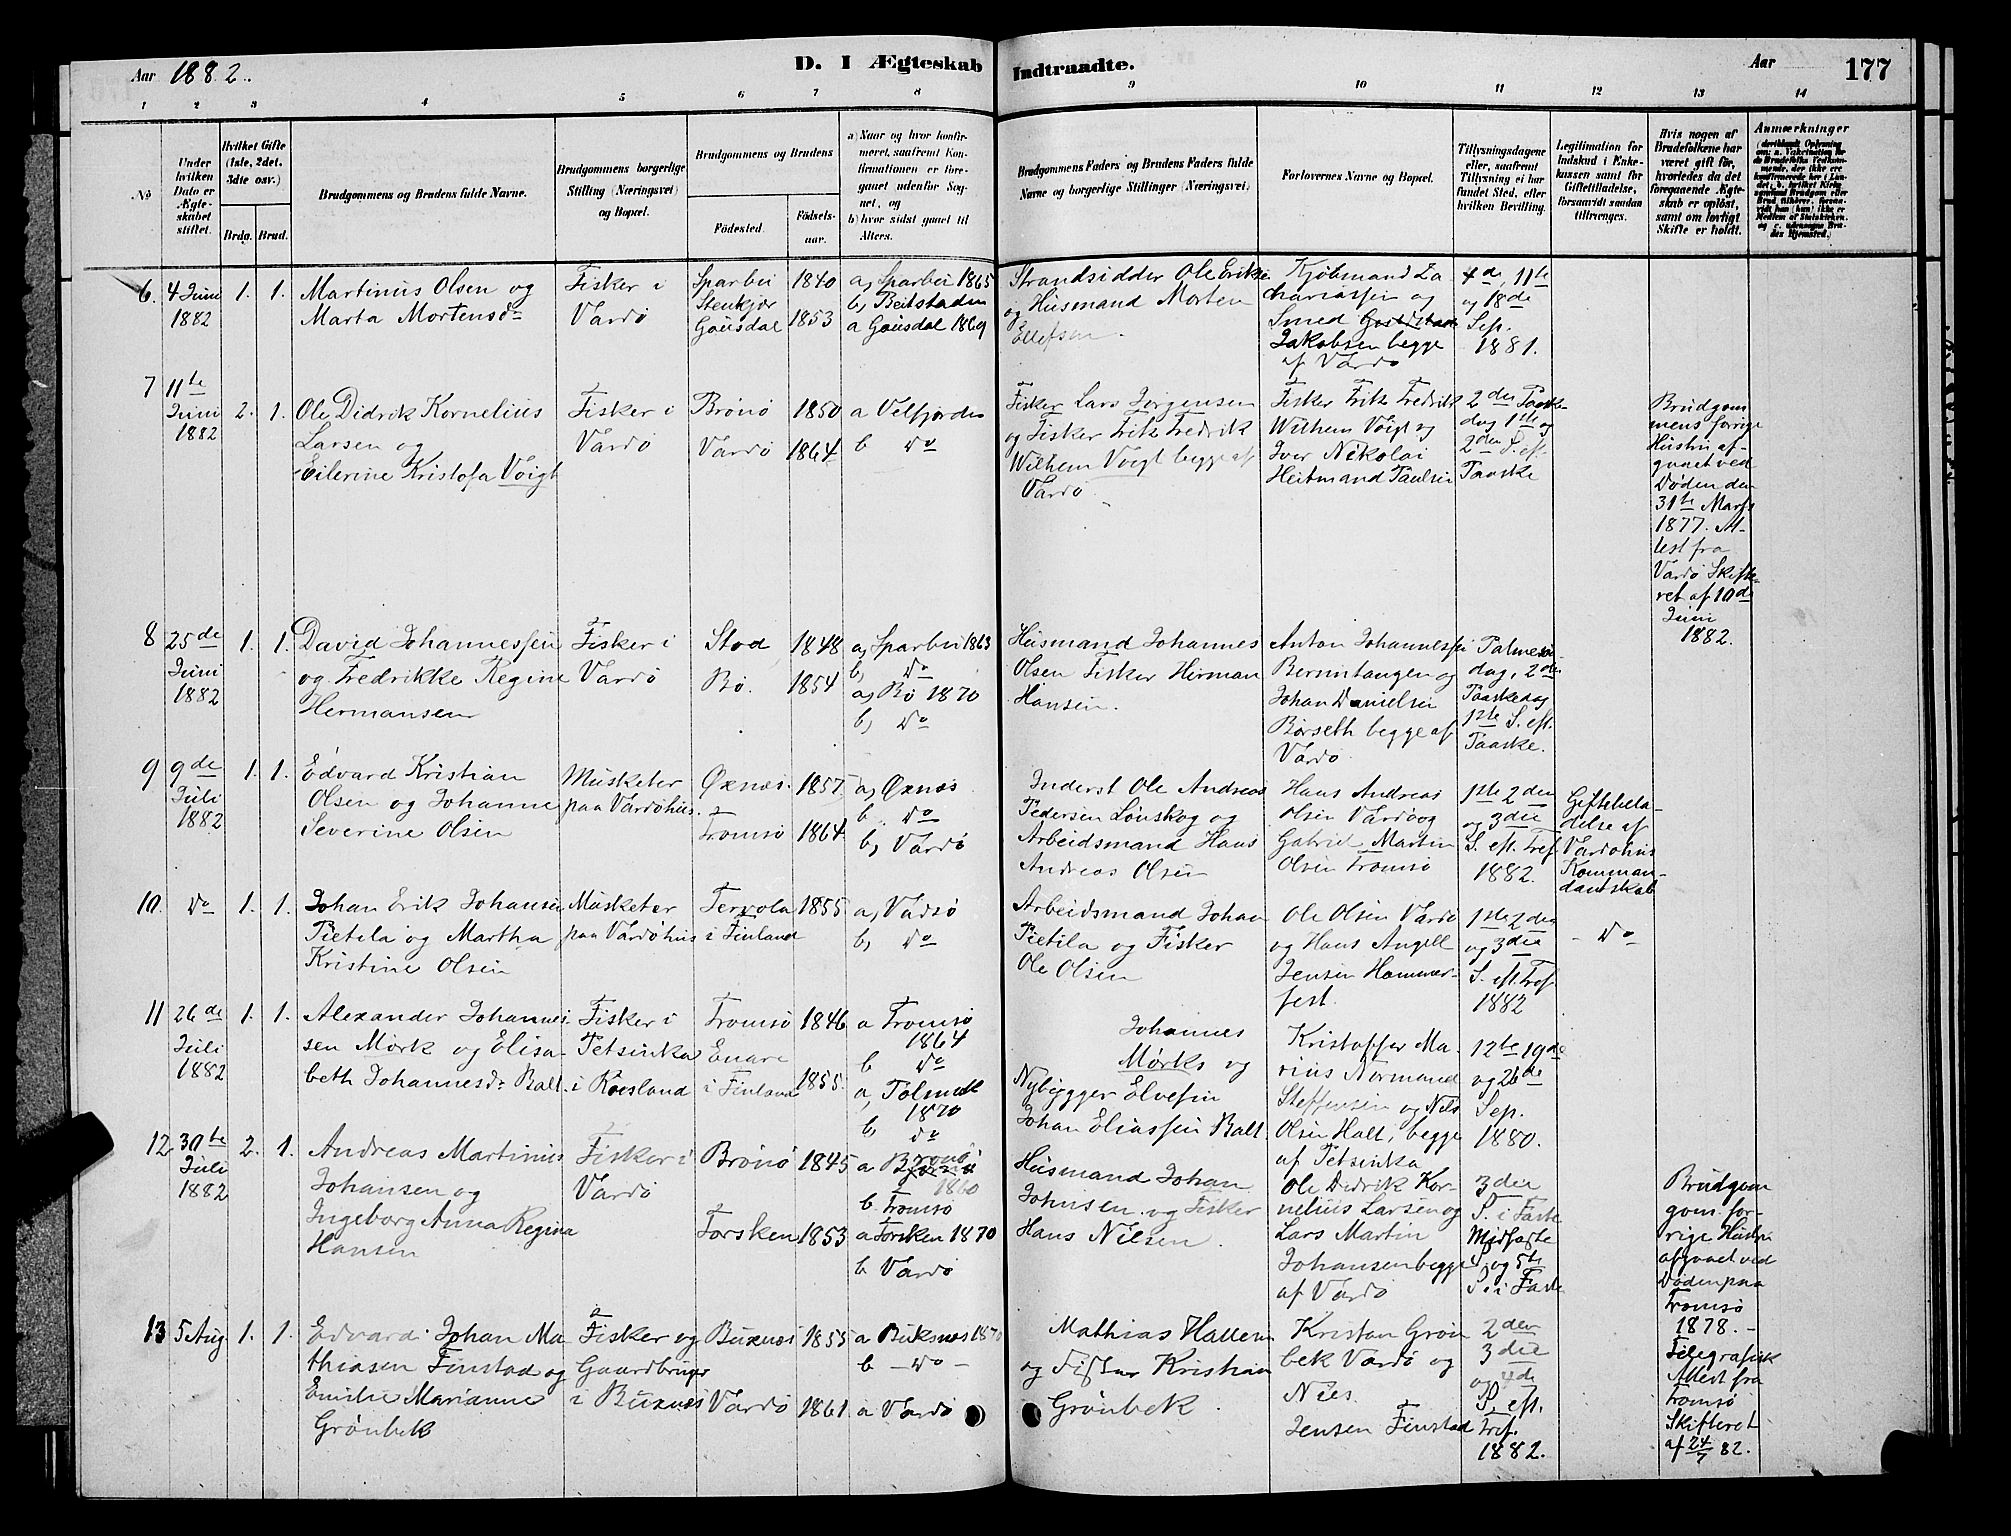 Aar 1882.
D. I Ægteskab Indtraadte.
Aar 177
1 2 3 4 5 6 7 8 9 10 11 12 13 14
No
Under hvilken Dato er Ægteskabet stiftet.
Hvilket Gifte (1ste, 2det, 3dte osv.)
Brdg. Brud.
Brudgommens og Brudens fulde Navne.
Brudgommens borgerlige Stilling (Næringsvei) og Bopæl.
Brudgommens og Brudens
Fødested. Fødselsaar.
a) Naar og hvor konfirmeret, saafremt Konfirmationen er foregaaet udenfor Sognet, og
b) hvor sidst gaaet til Alters.
Brudgommens Faders og Brudens Faders fulde Navne og borgerlige Stillinger (Næringsvei)
Forlovernes Navne og Bopæl.
Tillysningsdagene eller, saafremt Tillysning ei har fundet Sted, efter hvilken Bevilling.
Legitimation for Indskud i Enkekassen samt for Giftetilladelse, forsaavidt saadan tiltrænges.
Hvis nogen af Brudefolkene har været gift før, hvorledes da det foregaaende Ægteskab er opløst, samt om lovligt Skifte er holdt.
Anmærkninger
6. 4 Juni 1882
1. 1.
Martinus Olsen og
Marta Mortensdr
Fisker i
Vardø
Sparbu
Stenkjær
Gausdal
1840
1853
a, Sparbu 1865
b, Beitstaden
a Gausdal 1869
Strandsidder Ole Eriks.
og Husmand Morten
Ellefsen.
Kjøbmand Za
chariassen og
Smed
Jakobsen begge
af Vardø
4de, 11te
og 18de
Sep.
1881.
7 11te
Juni
1882
2. 1.
Ole Didrik Kornelius
Larsen og
Eilerine Kristofa Voigt
Fisker i
Vardø
Brønø
Vardø
1850
1864
a Velfjorden
b do
Fisker Lars Jørgensen
og Fisker Fritz Fredrik
Wilhem Voigt begge af
Vardø
Fisker Fritz Fredrik
Wilhem Voigt og
Iver Nikolai
Heitmand Paulsen
2den Paaske
dag 1ste og
2den S. eft.
Paaske
Brudgom
mens forrige
Hustru af-
gaaet ved
Døden den
31te Marts
1877. At-
test fra
Vardø Skifte-
ret af 10de
Juni
1882.
8 25de
Juni
1882
1. 1.
David Johannessen
og Fredrikke Regine
Hermansen
Fisker i
Vardø
Stod
Bø.
1848
1854
a, Sparbu 1863
b, do
a, Bø 1870
b, do
Husmand Johannes
Olsen Fisker Herman
Hansen.
Anton Johannessen
Bernintangen og
Johan Danielsen
Børseth begge af
Vardø
Palmesøn-
dag, 2den
Paaskedag
1ste S. eft.
Paaske.
9 9de
Juli
1882
1. 1.
Edvard Kristian
Olsen og Johanne
Severine Olsen
Musketer
paa Vardøhus.
Øxnæs.
Tromsø
1857
1864
a, Øxnæs
b. do
b, Vardø
Inderst Ole Andreas
Pedersen Lønskog og
Arbeidsmand Hans
Andreas Olsen
Hans Andreas
Olsen Vardø og
Gabriel Martin
Olsen Tromsø
1ste 2den
og 3die
S. eft. Tref.
1882.
Giftetilla-
delse af
Vardøhus
Komman-
dantskab
10. do
1. 1.
Johan Erik Johansen
Pietila og Martha
Kristine Olsen
Musketer
paa Vardøhus
Tervola
i Finland
1855
a, Vadsø
b, do
Arbeidsmand Johan
Pietila og Fisker
Ole Olsen
Ole Olsen Vardø
og Hans Angell
Jensen Hammer-
fest.
1ste 2den
og 3die
S. eft. Tref.
1882
- do
11 26de
Juli
1882
1. 1.
Alexander Johannes-
sen Mørk og Elisa-
beth Johannesdr Balt.
Fisker i
Petsinka
i Rusland
Tromsø
Enare
i Finland
1846
1855.
a Tromsø
1864
b do
a, Polmak
1870
b, do
Johannes
Mørks og
Nybygger Elvesen
Johan Eliassen Balt.
Kristoffer Ma-
rius Normand
Steffensen og Nils
Olsen Halt, begge
af Petsinka
12te 19de
og 26de
Sep.
1880.
12 30te
Juli
1882
2. 1.
Andreas Martinus
Johansen og
Ingeborg Anna Regina
Hansen
Fisker i
Vardø
Brønø
Torsken
1845
1853
a Brønø
1860
b Tromsø
a Torsken 1870
b Vardø
Husmand Johan
Johnsen og Fisker
Hans Nilsen
Ole Didrik Kor-
nelius Larsen og
Lars Martin
Johansen begge
af Vardø
3die
S. i Faste
Midfaste
S. og 5te
S. i Faste
Brudgom
gom. for-
rige Hustru
afgaaet ved
Døden paa
Tromsø
1878. -
Telegrafisk
Attest fra
Tromsø
Skifteret
af 24/7 82.
13 5 Aug
1. 1.
Edvard Johan Ma
thiasen Finstad og
Emilie Marianne
Grønbek
Fisker og
Gaardbruger
i Buxnæs
Buxnæs
Vardø
1855
1861
a Buksnæs 1870
b - do -
a Vardø
Mathias Hallem
og Fisker Kristian
Grønbek.
Kristan Grøn
bek Vardø og
Nils
Jensen Finstad
2den
3die
og 4de
S. eft.
Tref.
1882.